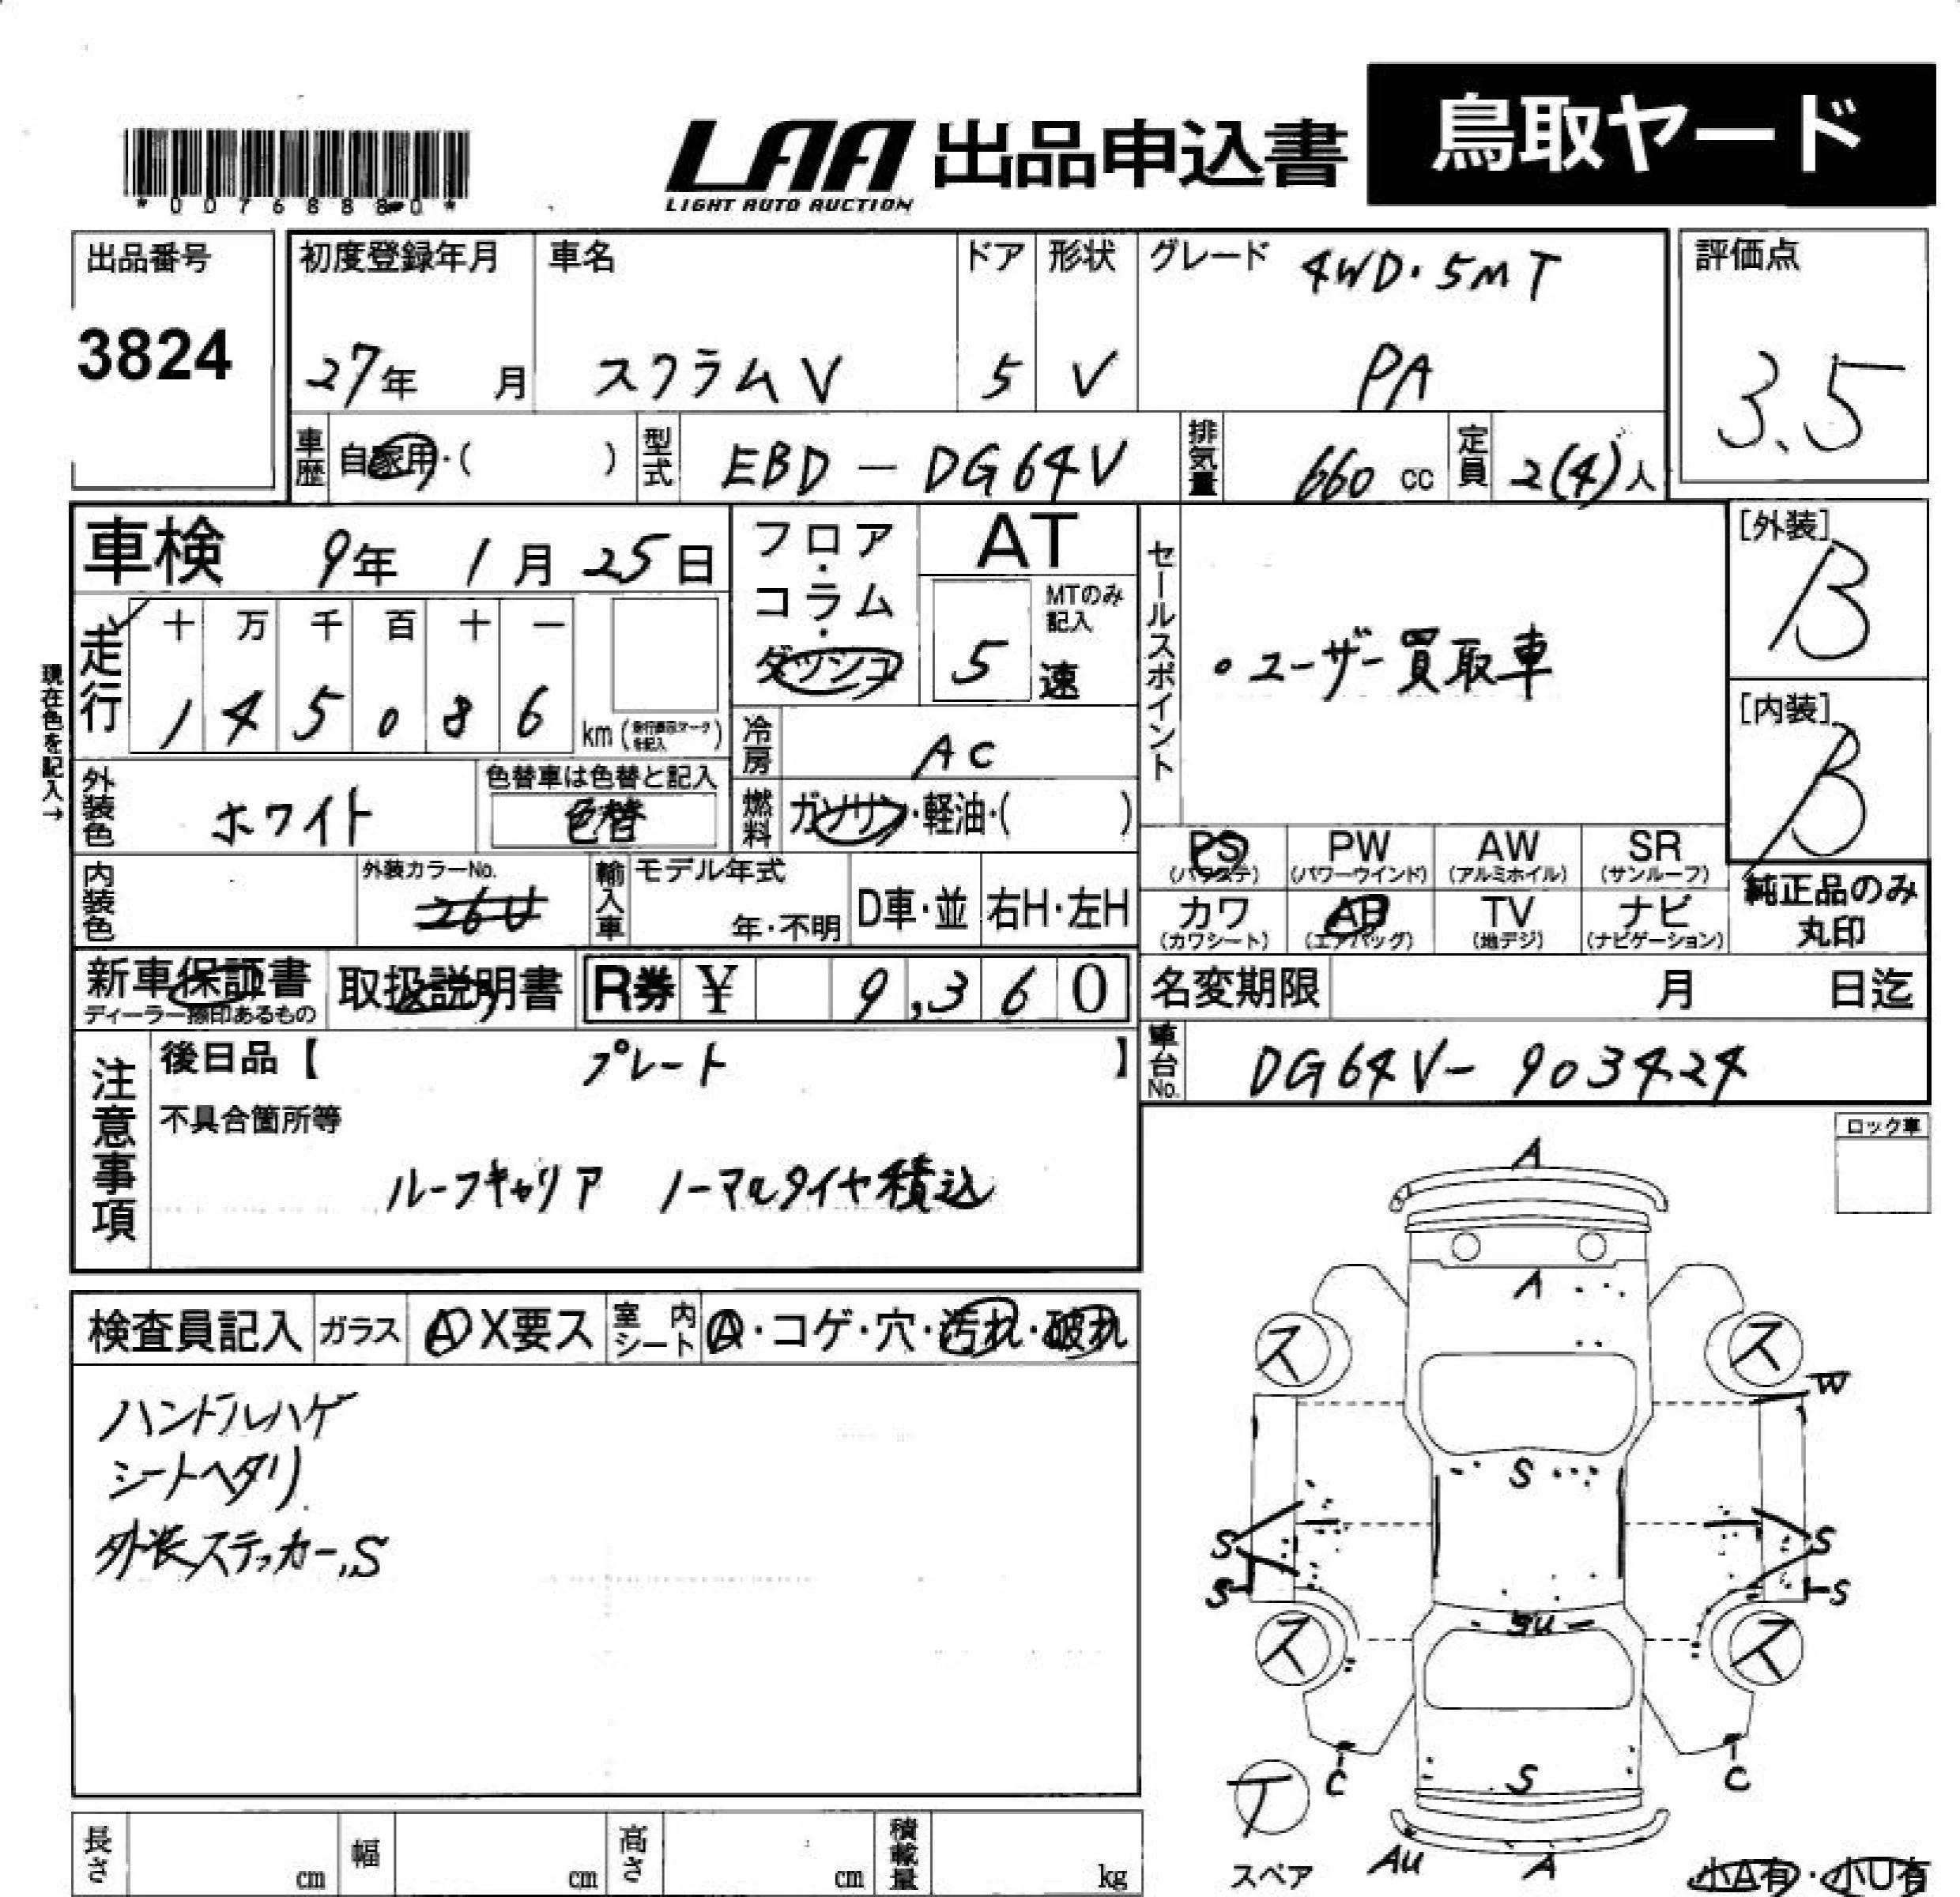 鳥取ヤード
LAA 出品申込書
LIGHT AUTO AUCTION
出品番号
3824
初度登録年月
27年 月
車名
スクラムV
ドア
5
形状
V
グレード 4WD・5MT
PA
評価点
3.5
車歴 自家用・( )
型式 EBD-DG64V
排気量 660 cc
定員 2(4)人
車検 9年 1月 25日
現在色を記入→
走行
十 万 千 百 十 一
1 4 5 0 8 6
km
フロア・コラム・ダッシュ
AT
MTのみ記入
5 速
冷房 AC
燃料 ガソリン・軽油・( )
セールスポイント
・ユーザー買取車
[外装]
B
[内装]
B
外装色 ホワイト
色替車は色替と記入
色替
内装色
外装カラーNo.
26U
輸入車
モデル年式
年・不明
D車・並
右H・左H
PS
(パワステ)
PW
(パワーウインド)
AW
(アルミホイル)
SR
(サンルーフ)
カワ
(カワシート)
AB
(エアバッグ)
TV
(地デジ)
ナビ
(ナビゲーション)
純正品のみ
丸印
新車保証書
ディーラー捺印あるもの
取扱説明書
R券 ¥ 9,360
名変期限 月 日迄
車台No. DG64V-903424
注意事項
後日品【 プレート 】
不具合箇所等
ルーフキャリア ノーマルタイヤ積込
ロック車
検査員記入
ガラス
A X要ス
室内シート
A・コゲ・穴・汚れ・破れ
ハンドルハゲ
シートヘタリ
外装ステッカー,S
A
A
ス ス
W
S
S S
S S
ス ス
C C
S
T
スペア
AU
A
小A有・小U有
長さ cm
幅 cm
高さ cm
積載量 kg